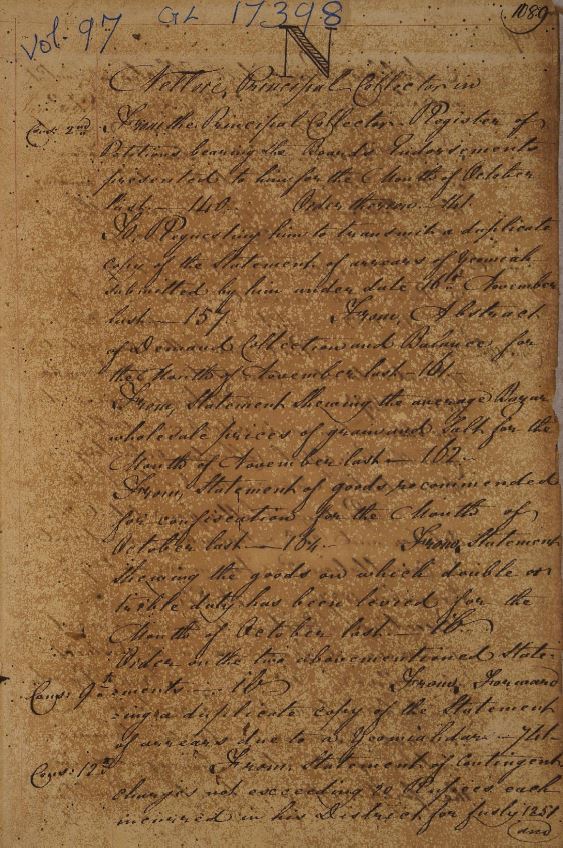 Vol. 97 GL 17398
1089
N
Nellore, Principal Collector in
Cons: 2nd From the Principal Collector Register of
Petitions bearing the Board's Endorsements
presented to him for the Month of October
last — 140. Order thereon — 141.
To, Requesting him to transmit a duplicate
copy of the Statement of arrears of Yeomiah
submitted by him under date 16th November
last — 157. From, Abstract
of Demand Collection and Balance, for
the Month of November last — 161.
From, Statement Shewing the average Bazar
wholesale prices of grain and Salt for the
Month of November last — 162.
From, Statement of goods recommended
for confiscation for the Month of
October last — 164. From, Statement
shewing the goods on which double or
treble duty has been levied for the
Month of October last —
Order on the two abovementioned State-
Cons: 9th -ments — From, Forward
-ing a duplicate copy of the Statement
of arrears due to a Yeomiahdar —
Cons: 12th From, Statement of Contingent
charges not exceeding 20 Rupees each
incurred in his District for fusly 1251
and